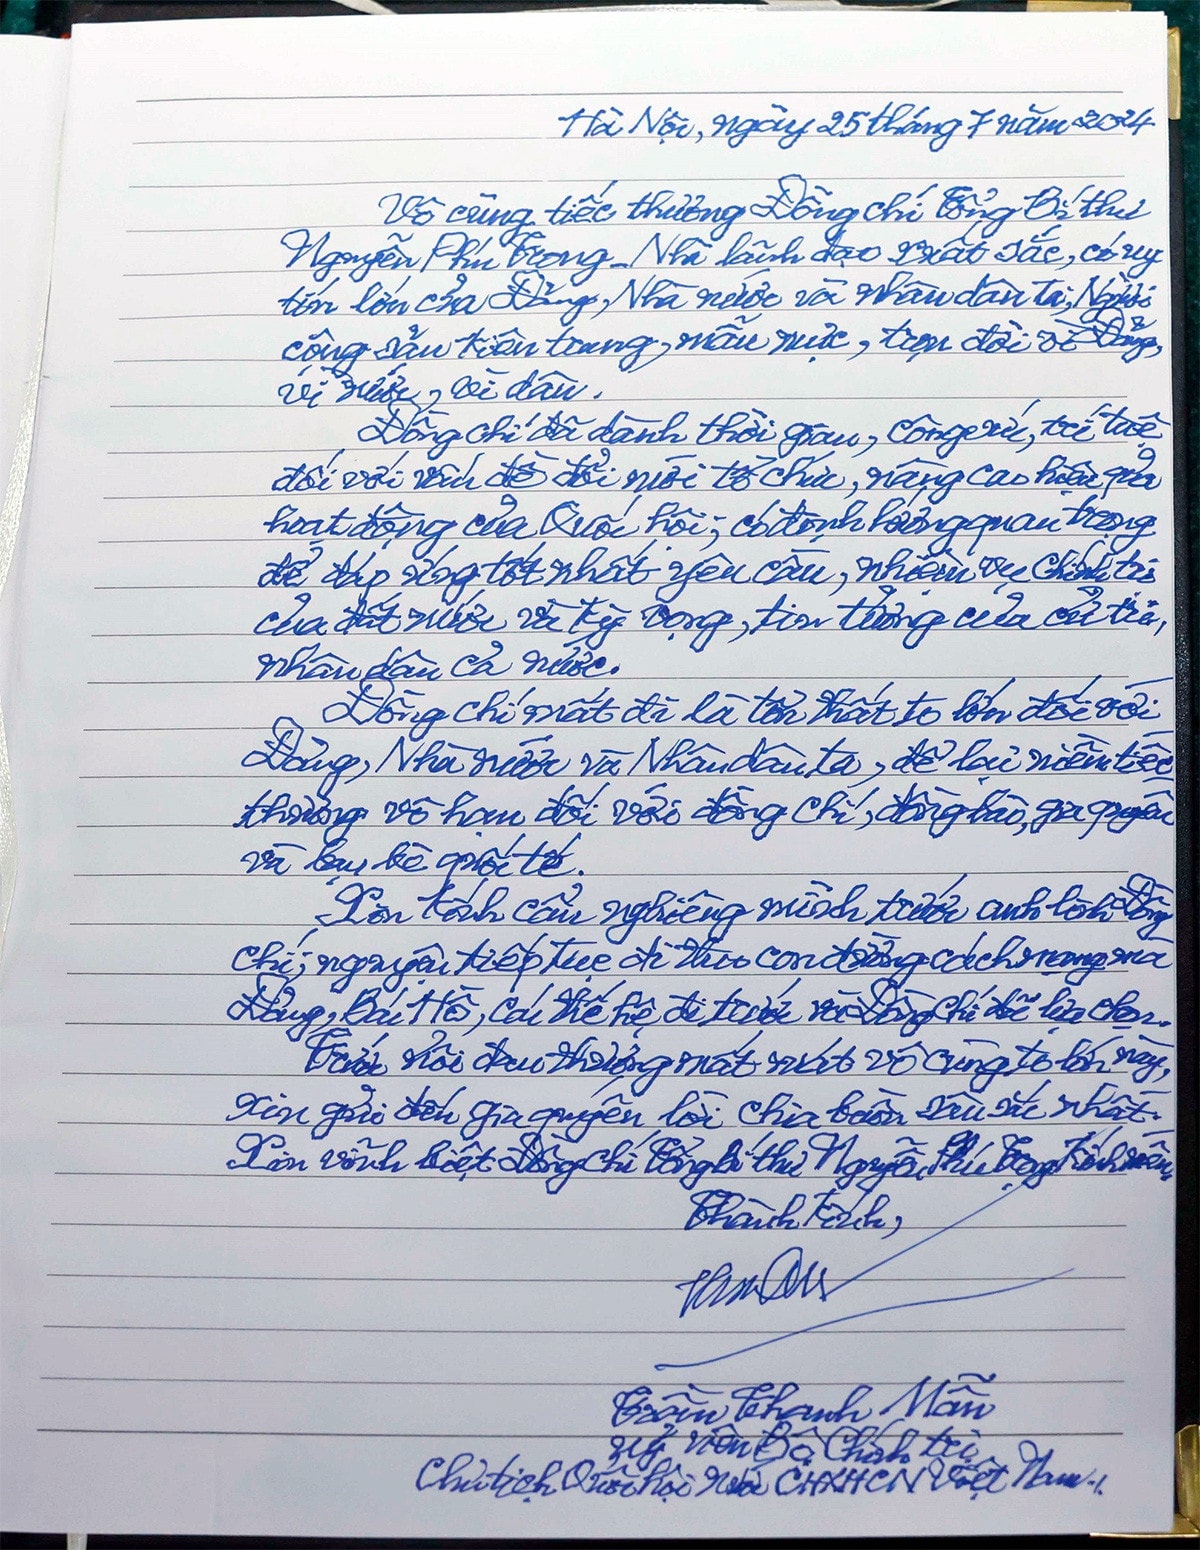 Hà Nội, ngày 25 tháng 7 năm 2024
Vô cùng tiếc thương Đồng chí Tổng Bí thư
Nguyễn Phú Trọng - Nhà lãnh đạo xuất sắc, có uy
tín lớn của Đảng, Nhà nước và nhân dân ta, Người
cộng sản kiên trung, mẫu mực, trọn đời vì Đảng,
vì nước, vì dân.
Đồng chí đã dành thời gian, công sức, trí tuệ
đối với vấn đề đổi mới tổ chức, nâng cao hiệu quả
hoạt động của Quốc hội; có định hướng quan trọng
để đáp ứng tốt nhất yêu cầu, nhiệm vụ chính trị
của đất nước và kỳ vọng, tin tưởng của cử tri,
nhân dân cả nước.
Đồng chí mất đi là tổn thất to lớn đối với
Đảng, Nhà nước và Nhân dân ta, để lại niềm tiếc
thương vô hạn đối với đồng chí, đồng bào, gia quyến
và bạn bè quốc tế.
Xin kính cẩn nghiêng mình trước anh linh Đồng
chí; nguyện tiếp tục đi theo con đường cách mạng mà
Đảng, Bác Hồ, các thế hệ đi trước và Đồng chí đã lựa chọn.
Trước nỗi đau thương mất mát vô cùng to lớn này,
xin gửi đến gia quyến lời chia buồn sâu sắc nhất.
Xin vĩnh biệt Đồng chí Tổng bí thư Nguyễn Phú Trọng kính mến
Thành kính,
Trần Thanh Mẫn
Uỷ viên Bộ Chính trị
Chủ tịch Quốc hội nước CHXHCN Việt Nam./.